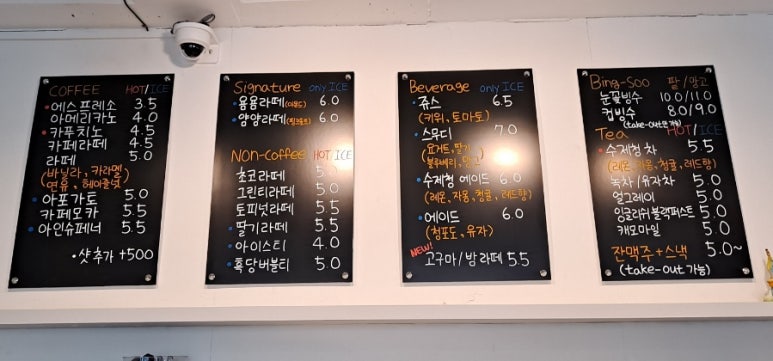 COFFEE HOT/ICE
에스프레소 3.5
아메리카노 4.0
카푸치노 4.5
카페라떼 4.5
라떼 5.0
(바닐라, 카라멜
연유, 헤이즐넛)
아포가토 5.0
카페모카 5.5
아인슈페너 5.5
샷추가 +500
Signature only ICE
용용라떼(아몬드) 6.0
얌얌라떼 6.0
NON-Coffee HOT/ICE
초코라떼 5.0
그린티라떼 5.0
토피넛라떼 5.5
딸기라떼 5.5
아이스티 4.0
흑당버블티 5.0
Beverage only ICE
쥬스 6.5
(키위, 토마토)
스무디 7.0
(요거트, 딸기
블루베리, 망고)
수제청 에이드 6.0
(레몬, 자몽, 청귤, 레드향)
에이드 6.0
(청포도, 유자)
NEW!
고구마/밤라떼 5.5
Bing-Soo 팥/망고
눈꽃빙수 10.0/11.0
컵빙수 8.0/9.0
(take-out만 가능)
Tea HOT/ICE
수제청 차 5.5
(레몬, 자몽, 청귤, 레드향)
녹차/유자차 5.0
얼그레이 5.0
잉글리쉬 블랙퍼스트 5.0
캐모마일 5.0
잔맥주+스낵 5.0~
(take-out 가능)